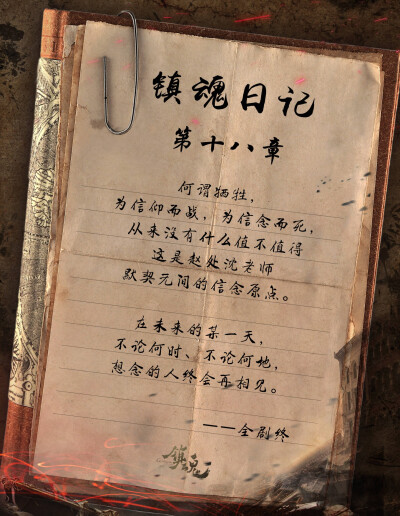 镇魂日记
第十八章
何谓牺牲，
为信仰而战，为信念而死，
从来没有什么值不值得
这是赵处沈老师
默契无间的信念原点。
在未来的某一天，
不论何时、不论何地，
想念的人终会再相见。
——全剧终
镇魂